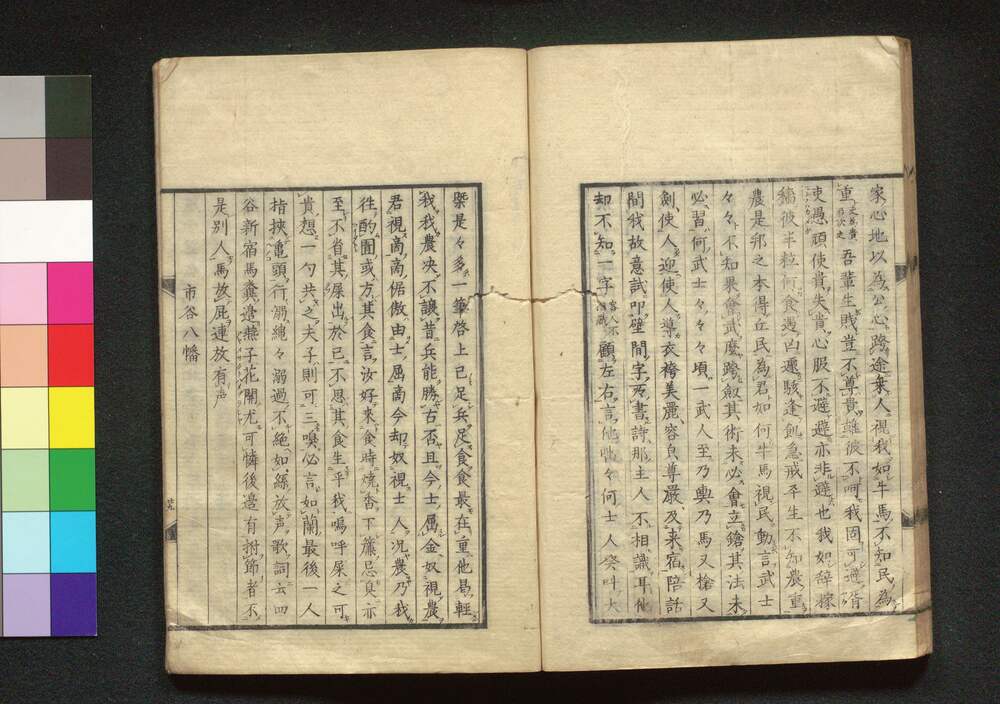 家心地以為公心跨途棄人視我如牛馬不知民為
重 吾輩生賎豈不尊貴雖彼不呵我固可避胥
吏愚頑使貴失貴心服不避避亦非避也我如辞稼
穡彼半粒何食遇凶遷駭逢飢急戒平生不知農重
農是邦之本得丘民為君如何牛馬視民動言武士
々々不知果會武麼跨劔其術未必會立鎗其法未
必習何武士々々頃一武人至乃輿乃馬又槍又
劍使人迎使人導衣袴美麗容皃尊嚴及来宿陪話
間我故意試叩壁間字所書詩那主人不相識耳他
却不知一字 顧左右言他啙々何士人癸叫大
槩是々多一筆啓上已足兵足食食最在重他易輕
我我農央不讓昔兵能勝古否且今士屬金奴視農
君視商商倨傲由士屬商今却奴視士人况農乃我
徃酌圊或方其食言汝好来食時燒香下簾忌臭亦
至不省其屎出於已不恩其食生平我嗚呼屎之可
貴想一勺共之夫子則可三嗅必言如蘭最後一人
指挾龜頭行溺縷々溺過不絶如絲放声歌詞去四
谷新宿馬糞邉蕪子花開尤可憐後邉有拊節者不
是別人馬故屁連放有声
市谷八幡